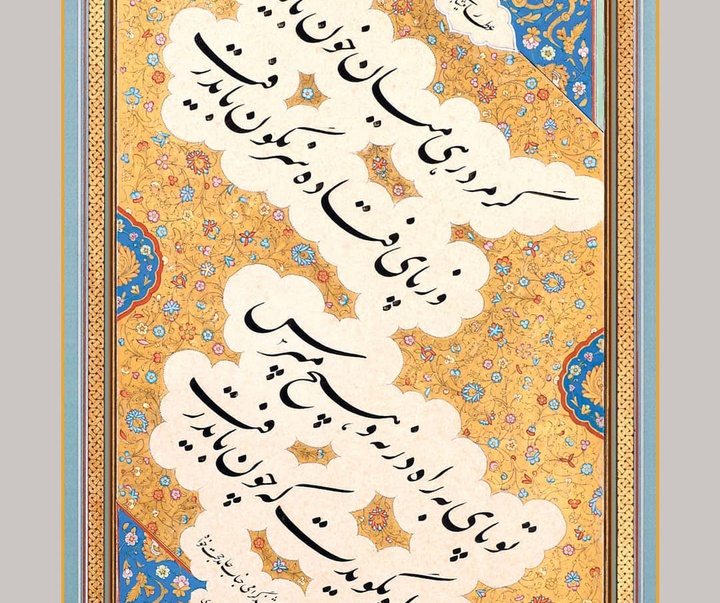 گر مرد رهی میان خون
وز پای فتاده سرنگون باید رفت
تو پای به راه در نه و هیچ مپرس
راه بگویدت که چون باید رفت